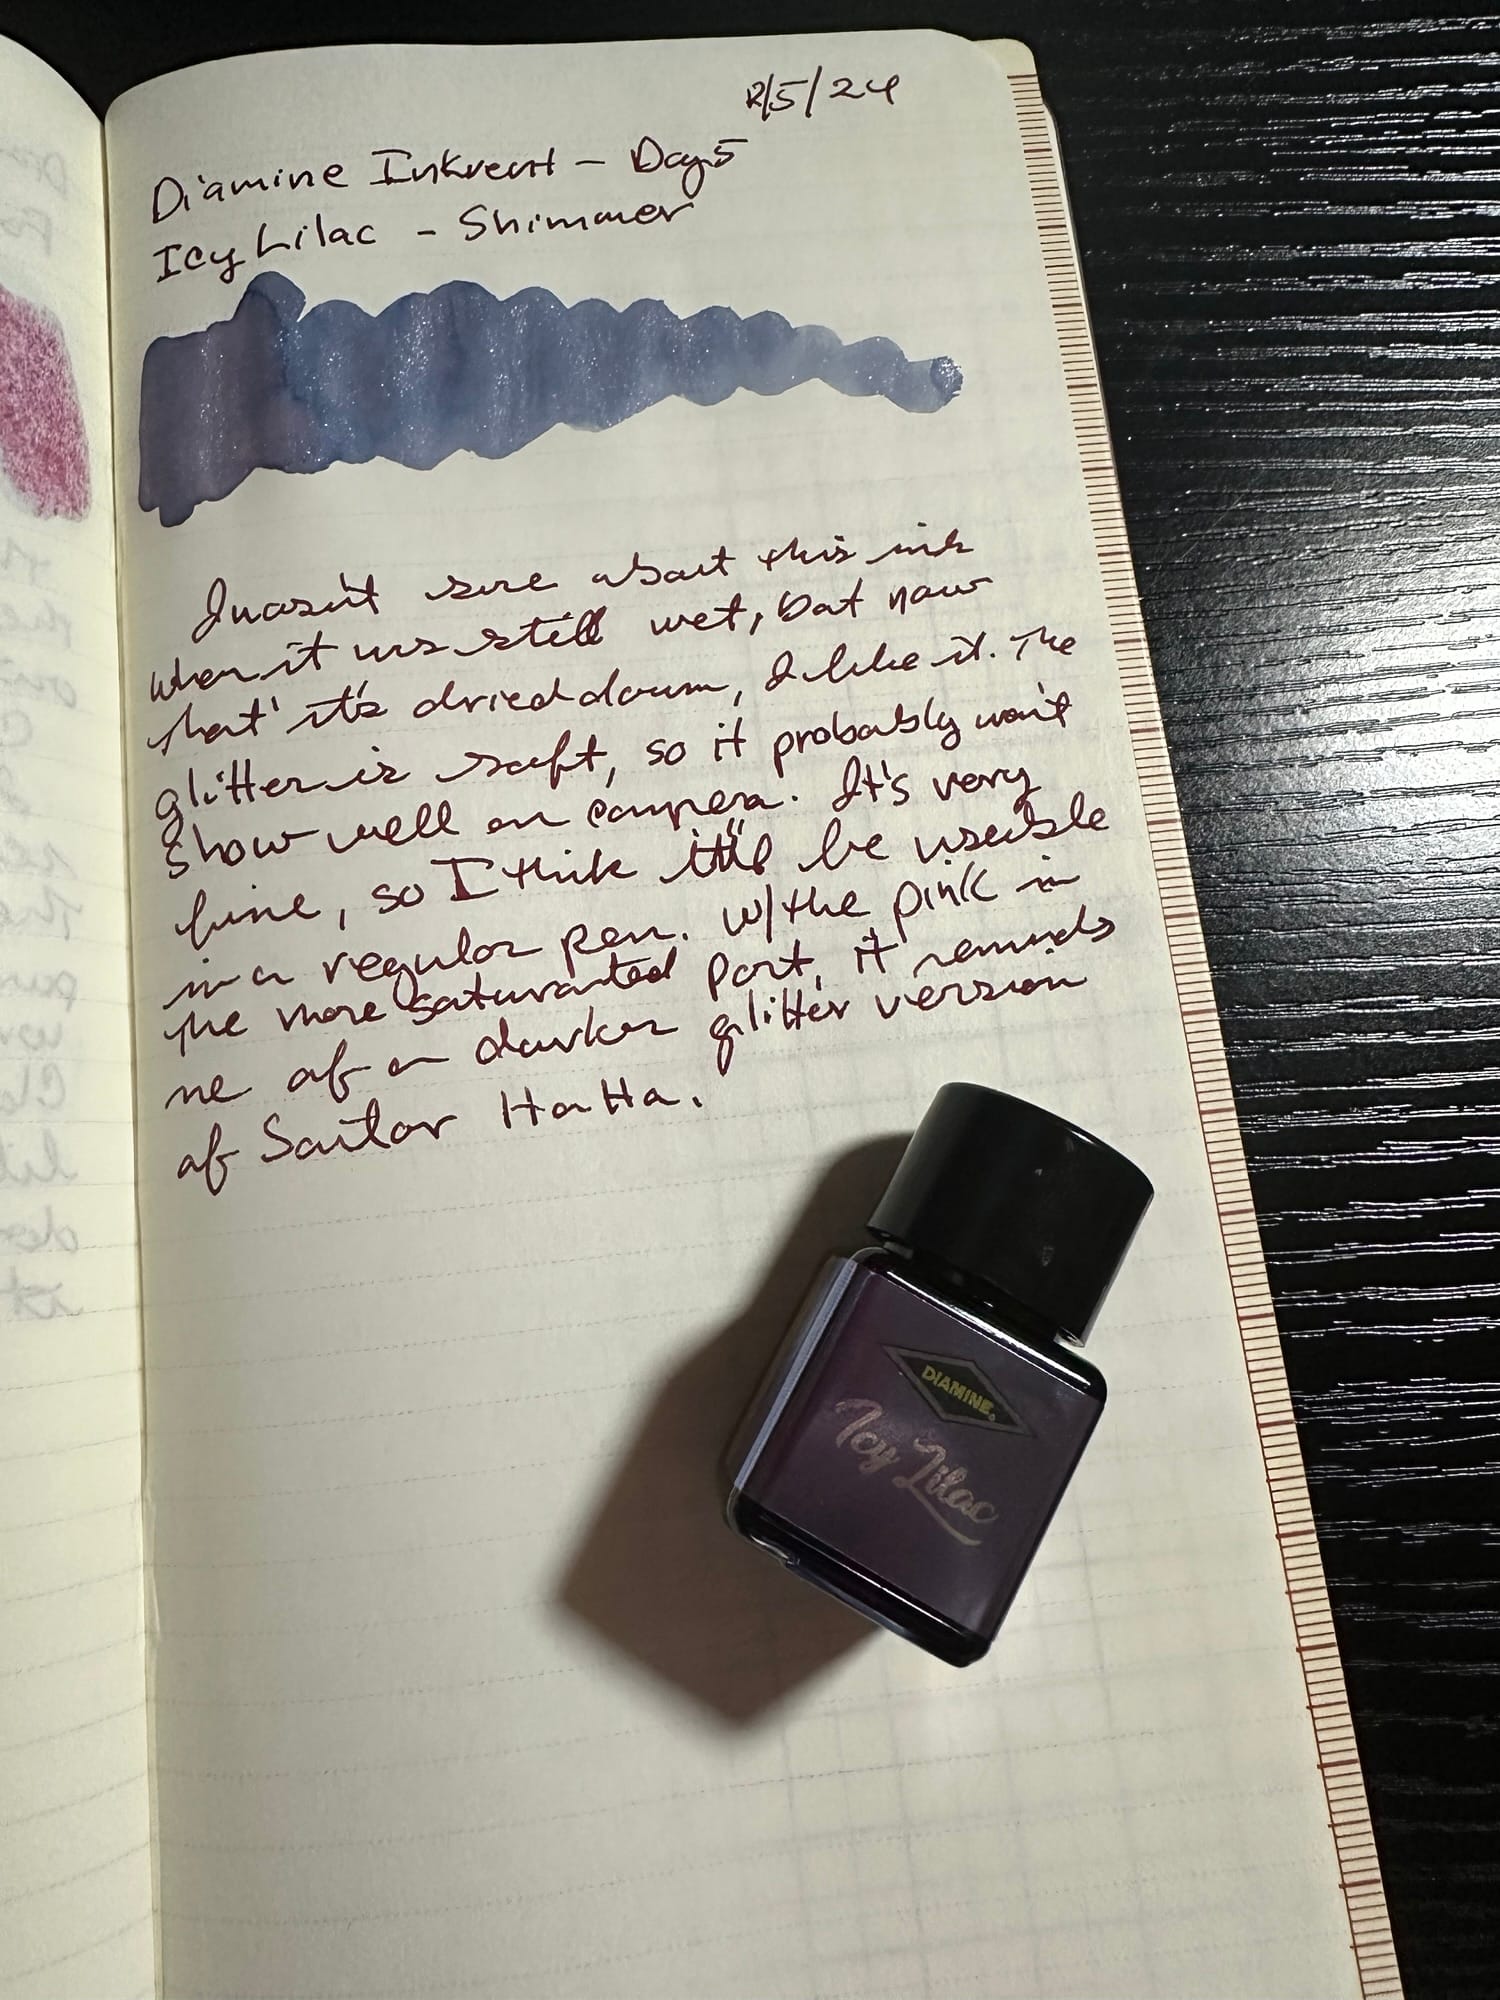 12/5/24
Diamine Inkvent - Day 5
Icy Lilac - Shimmer
I wasn't sure about this ink
when it was still wet, but now
that it's dried down, I like it. The
glitter is soft, so it probably won't
show well on camera. It's very
fine, so I think it'll be useable
in a regular pen. w/the pink in
the more saturated part, it reminds
me of a darker glitter version
of Sailor HaHa.
DIAMINE
Icy Lilac